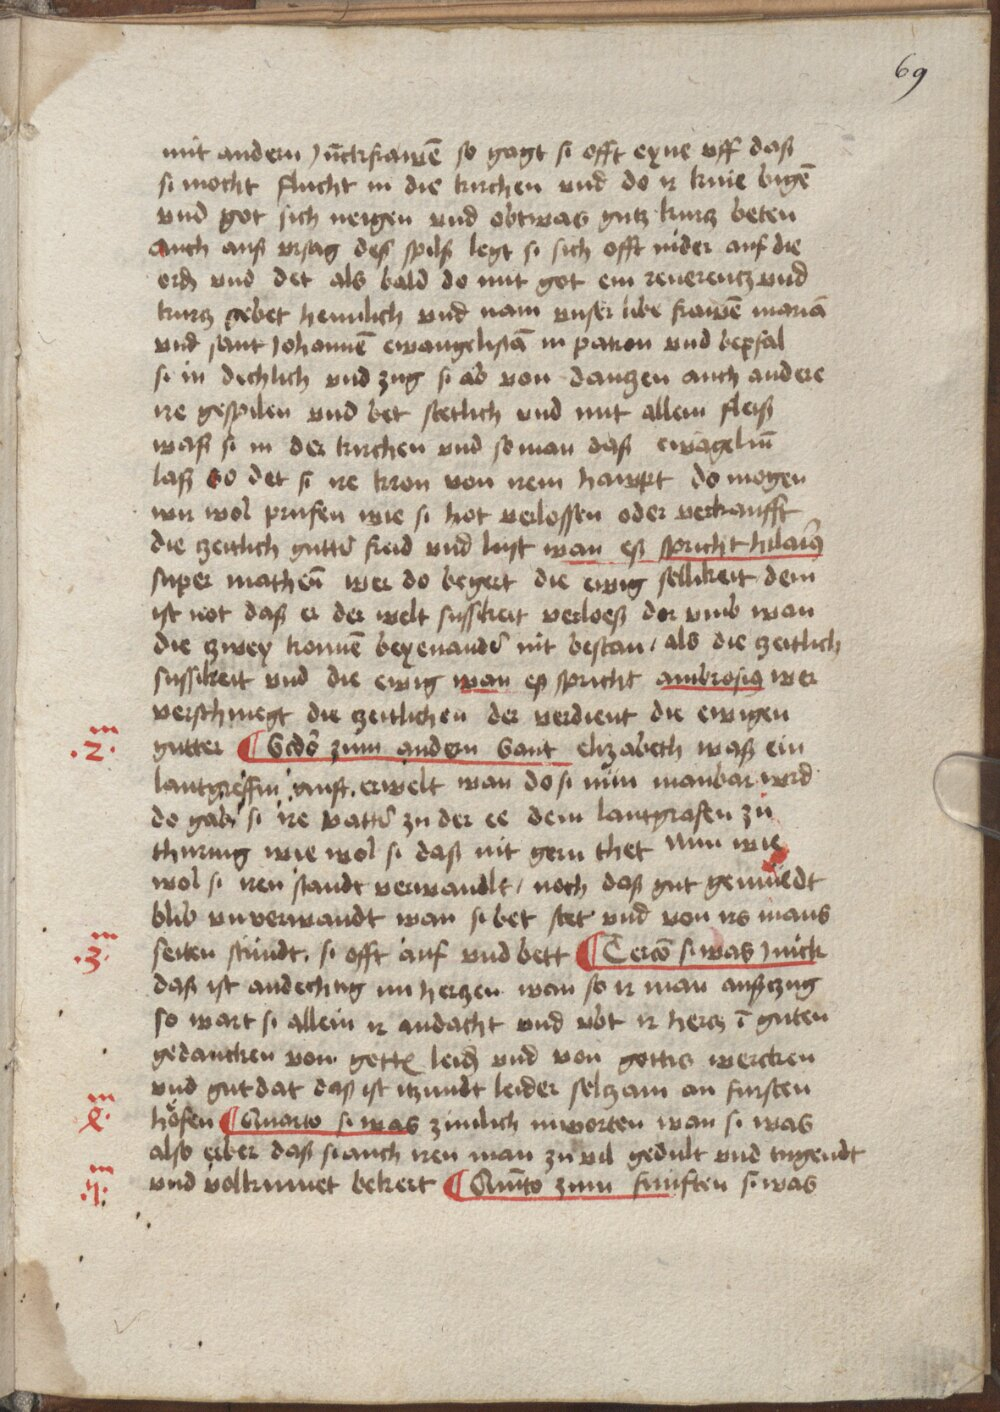 69
mit andern Jūckfrawē so gagt si offt eyne vff daß
si mocht flucht in die kirchen vnd do ir knie bigē
vnd got sich neigen vnd obtwas gutz kurcz beten
auch auß vrsag deß spilß legt si sich offt nider auf die
erd vnd det als bald do mit got ein reuerentz vnd
kurcz gebet heimlich vnd nam vnser libe frawē mariā
vnd sant Johannē ewangelistā in patron vnd bepfal
si in dechlich vnd zug si ab von dantzen auch andere
ire gespilen vnd bet stetlich vnd mit allem fleiß
waß si in der kirchen vnd so man daß ewāgeliū
laß so det si ire kron von irem hawpt do mogen
wir wol prufen wie si hot verlossen oder verkaufft
die zeitlich gutter freid vnd lust wan eß spricht hilariꝰ
super matheū wer do begert die ewig sellikeit dem
ist not daß er der welt sussikeit verloeß dor vmb wan
die zwey konnē beyenander nit bestan / als die zeitlich
sussikeit vnd die ewig wan eß spricht ambrosiꝰ wer
verschmegt die zeitlichen der verdient die ewigen
.2.m gutter ¶ Scdo zum andern Sant elizabeth waß ein
lantgreffin erwelt wan do si nun manbar wrd
do gab si ire vatter zu der ee dem lantgrafen zu
thuring wie wol si daß nit gern thet Nun wie
wol si iren standt verwandlt / noch daß gut gemüedt
blib vnverwandt wan si bet stet vnd von irs mans
.3.m seiten stundt. si offt auf vnd bett ¶ Tercō si was Jnick
daß ist andechtig im hertzen wan so ir man außczug
so wart si allein ir andacht vnd vbt ir hercz ī guten
gedancken von gottes leid vnd von gottis wercken
vnd gutdat daß ist itzundt leider seltzam an fursten
.4.m höfen ¶ Quarto si was zimlich in worten wan si was
also erber daß si auch iren man zu vil gedult vnd tugendt
.5.m vnd volkumet bekert ¶ Quīto zum funften si was